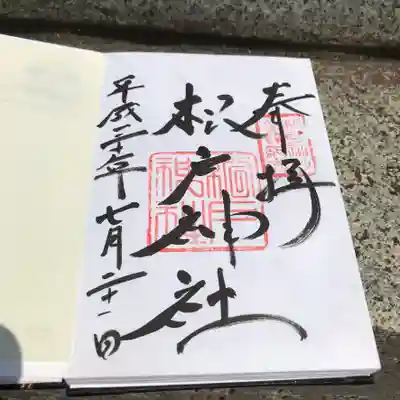 奉拝
松戸神社
平成三十年七月二十一日